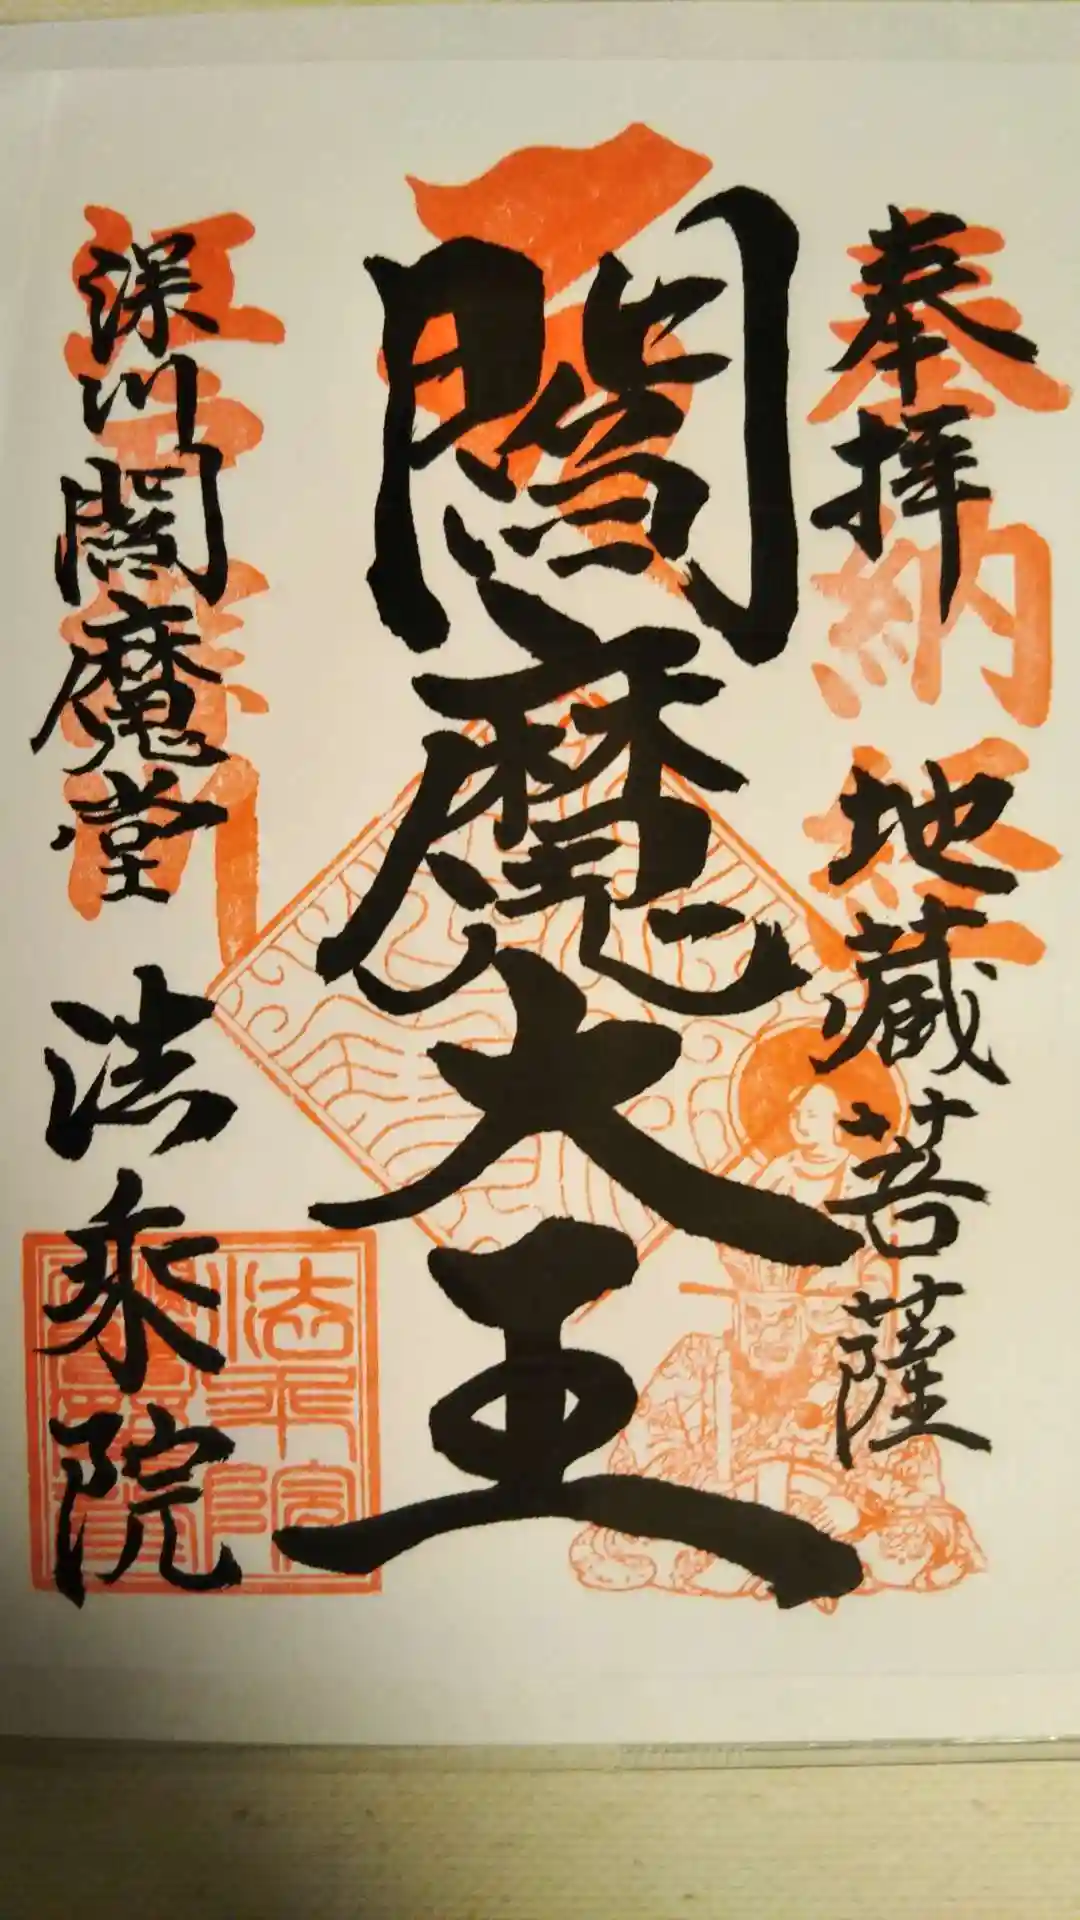 奉拝
地蔵菩薩
奉納経
閻魔大王
深川閻魔堂
法乗院
江戸深川
法乗院